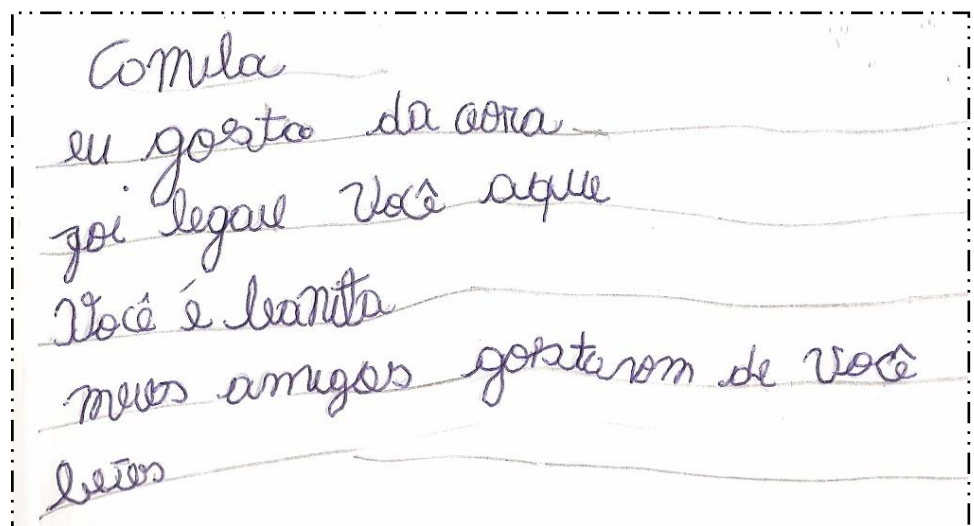 Comila
eu gosto da aora
foi legau você aque
Você é banita
meus amigos gostarom de você
beios